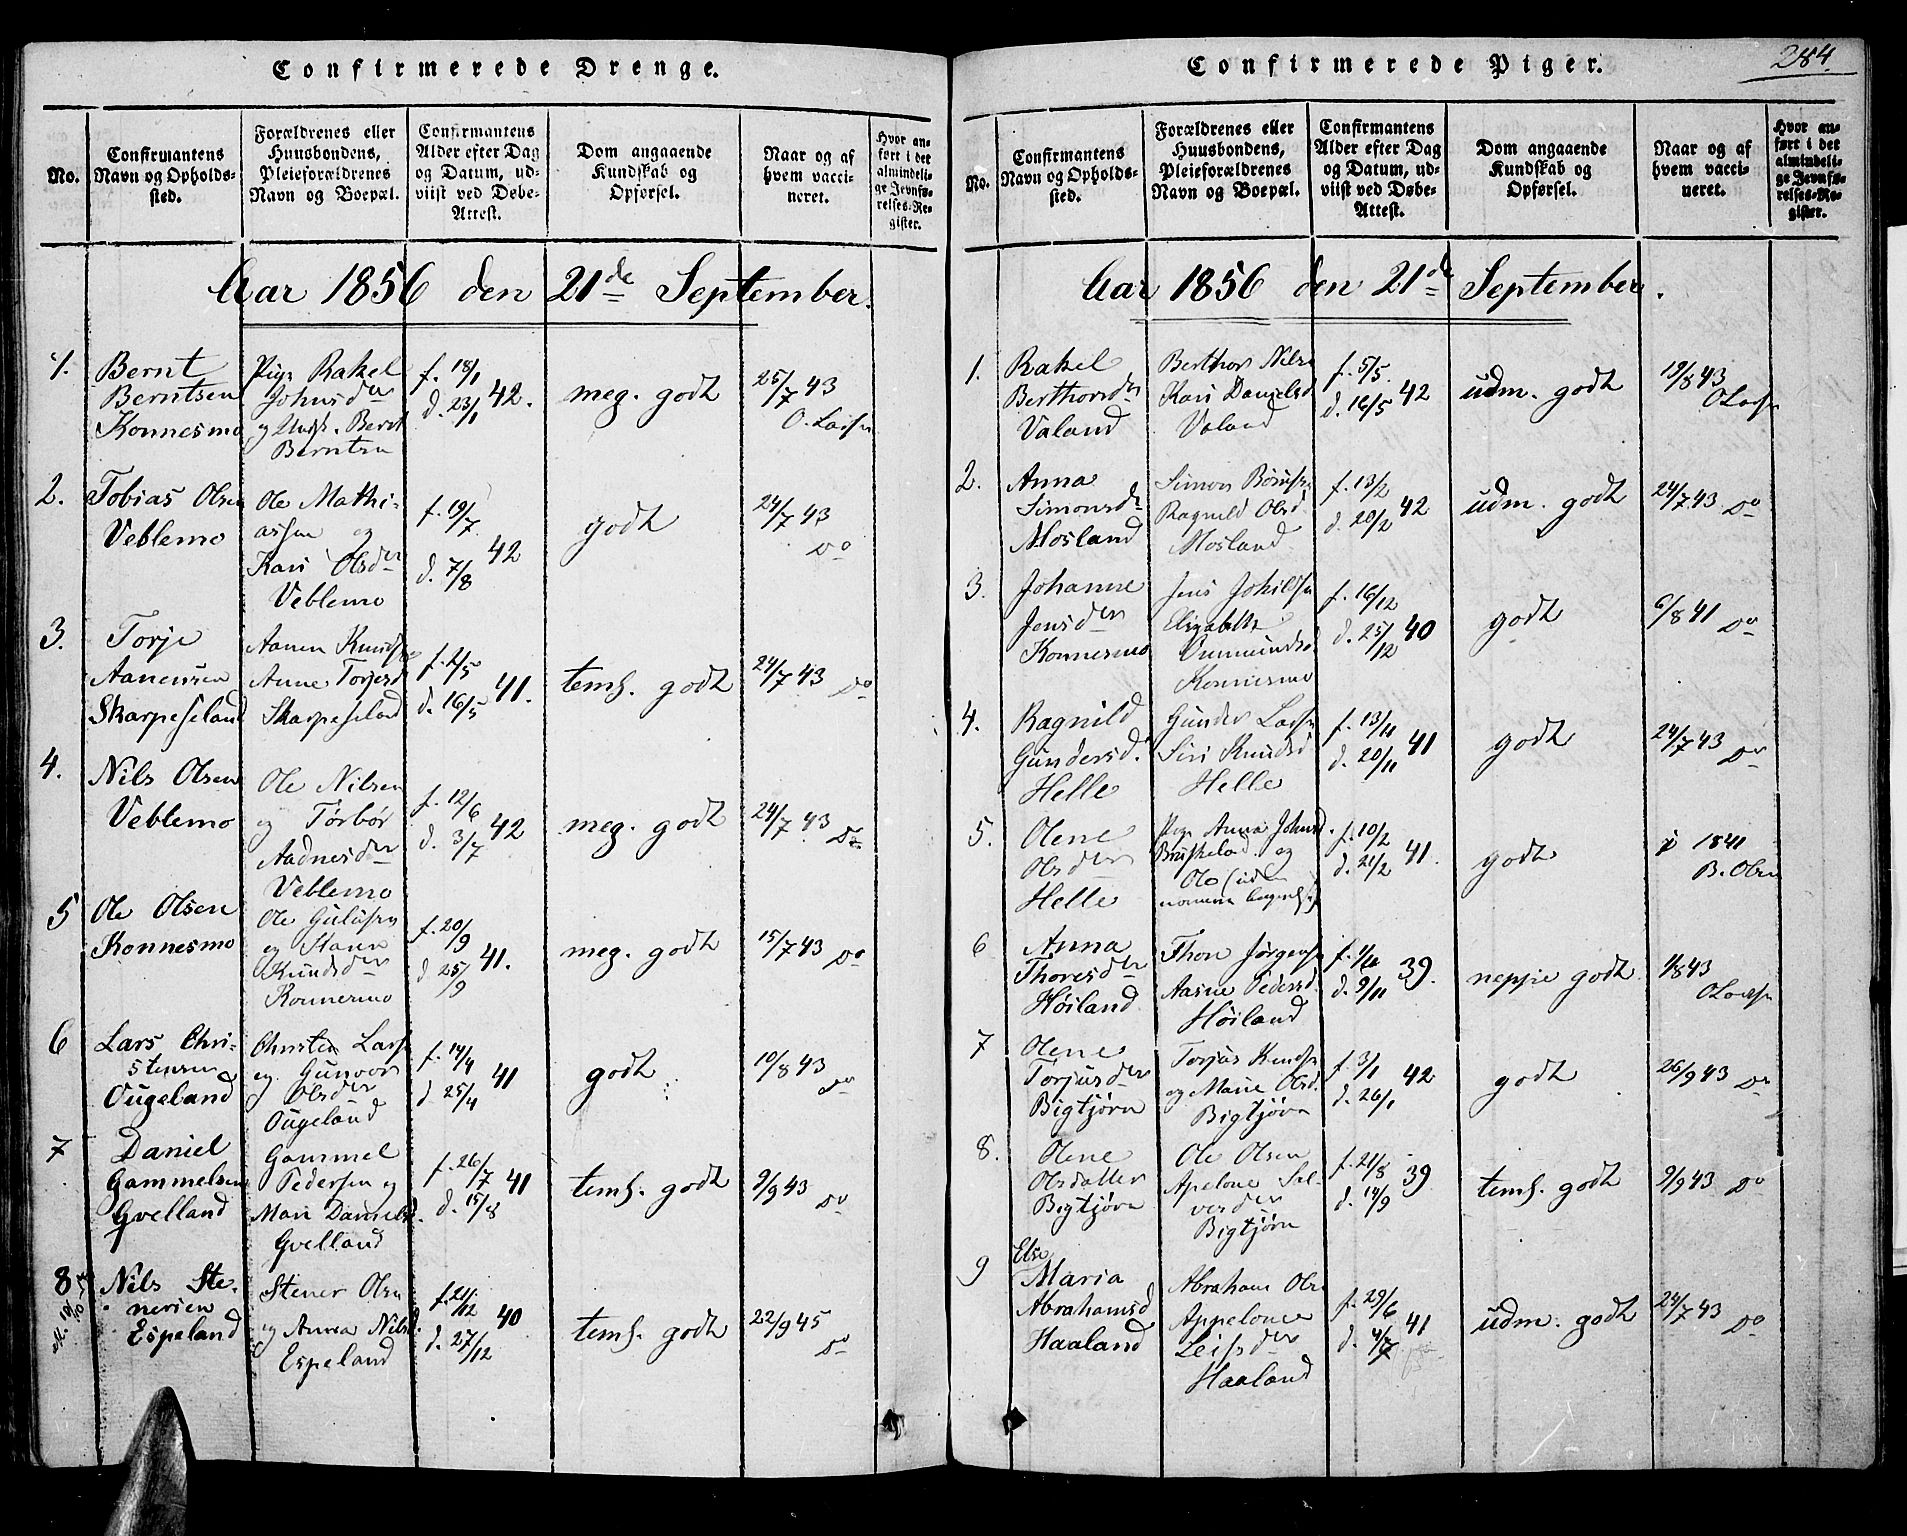 Confirmerede Drenge.
No.
Confirmantens
Navn og Opholds-
sted.
Forældrenes eller
Huusbondens,
Pleieforældrenes
Navn og Boepæl.
Confirmantens
Alder efter Dag
og Datum, ud-
viist ved Døbe-
Attest.
Dom angaaende
Kundskab og
Opførsel.
Naar og af
hvem vacci-
neret.
Hvor an-
ført i det
almindeli-
ge Jevnfø-
relses-Re-
gister.
Aar 1856 den 21de September.
1.
Bernt
Berntsen
Konnesmo
Pige Rakel
Johnsder
og Bernt
Berntsen
f. 18/1
d. 23/1 42.
meg. godt
25/7 43
O. Larsen
2.
Tobias Olsen
Veblemo
Ole Mathi-
assen og
Kari Olsder
Veblemo
f. 19/7
d. 7/8 42
godt
24/7 43
Do
3.
Torje
Aanensen
Skarpeseland
Aanen Knudsen
Anne Torjesd
Skarpeseland
f. 2/5
d. 16/5 41.
temh. godt
24/7 43 Do
4.
Nils Olsen
Veblemo
Ole Nilsen
og Tørbør
Aadnesder
Veblemo
f. 12/6
d. 3/7 42
meg. godt
24/7 43 Do
5
Ole Olsen
Konnesmo
Ole
og
Knudsder
Konnesmo
f. 20/9
d 25/9 41.
meg. godt
15/7 43 Do
6
Lars Chri-
stensen
Ougeland
Christen Larsen
og Gunvor
Olsder
Ougeland
f. 14/4
d 25/4 41
godt
10/8 43
Do
7
Daniel
Gammelsen
Gvelland
Gammel
Pedersen og
Mari Danielsd.
Gvelland
f. 26/7
d. 15/8 41
temh. godt
9/9 43 Do
8
Nils Ste-
nersen
Espeland
Stener Olsen
og Anna Nilsd.
Espeland
f. 21/12
d. 27/12 40
temh. godt
22/9 45
Do
Confirmerede Piger.
284.
No.
Confirmantens
Navn og Opholds-
sted.
Forældrenes eller
Huusbondens,
Pleieforældrenes
Navn og Boepæl.
Confirmantens
Alder efter Dag
og Datum, ud-
viist ved Døbe-
Attest.
Dom angaaende
Kundskab og
Opførsel.
Naar og af
hvem vacci-
neret.
Hvor an-
ført i det
almindeli-
ge Jevnfø-
relses-Re-
gister.
Aar 1856 den 21de September.
1.
Rakel
Berthorsdr
Valand
Berthor Nilsen
Kari Danielsd
Valand
f. 5/5.
d. 16/5 42
udm. godt
19/8 43
O Larsen
2.
Anna
Simonsdr
Mosland
Simon
Ragnild Olsd.
Mosland
f. 13/2
d. 20/2 42
udm. godt
24/7 43 Do
3.
Johanne
Jensder
Konnesmo
Jens
Elisabeth
Ommundsd
Konnesmo
f. 16/12
d. 25/12 40
godt
6/8 41 Do
4.
Ragnild
Gundersd.
Helle
Gunder Larsen
Siri Knudsd
Helle
f. 13/11
d. 20/11 41
godt
24/7 43 Do
5.
Olene
Olsder
Helle
Pige Anna Johnsd.
og
Ole (uden
f. 10/2
d. 21/2 41.
godt
1841
B. Olsen
6
Anna
Thoresder
Høiland
Thore Jørgensen
Aasne Pedersd.
Høiland
d. 9/11 39.
neppe godt
1/8 43
O Larsen
7
Olene
Torjusder
Bigtjørn
Torjus Knudsen
og Marie Olsd.
Bigtjørn
f. 3/1
d. 26/1 42
godt
26/9 43 Do
8.
Olene
Olsdatter
Bigtjørn
Ole Olsen
Apelone Sal-
vesder
Bigtjørn
f. 21/8
d. 14/9 39
temh. godt
9/9 43 Do
9
Else
Maria
Abrahamsd
Haaland
Abraham Olsen
Appelone
Leifsder
Haaland
f. 29/6
d. 4/7 41
udm. godt
24/7 43
Do